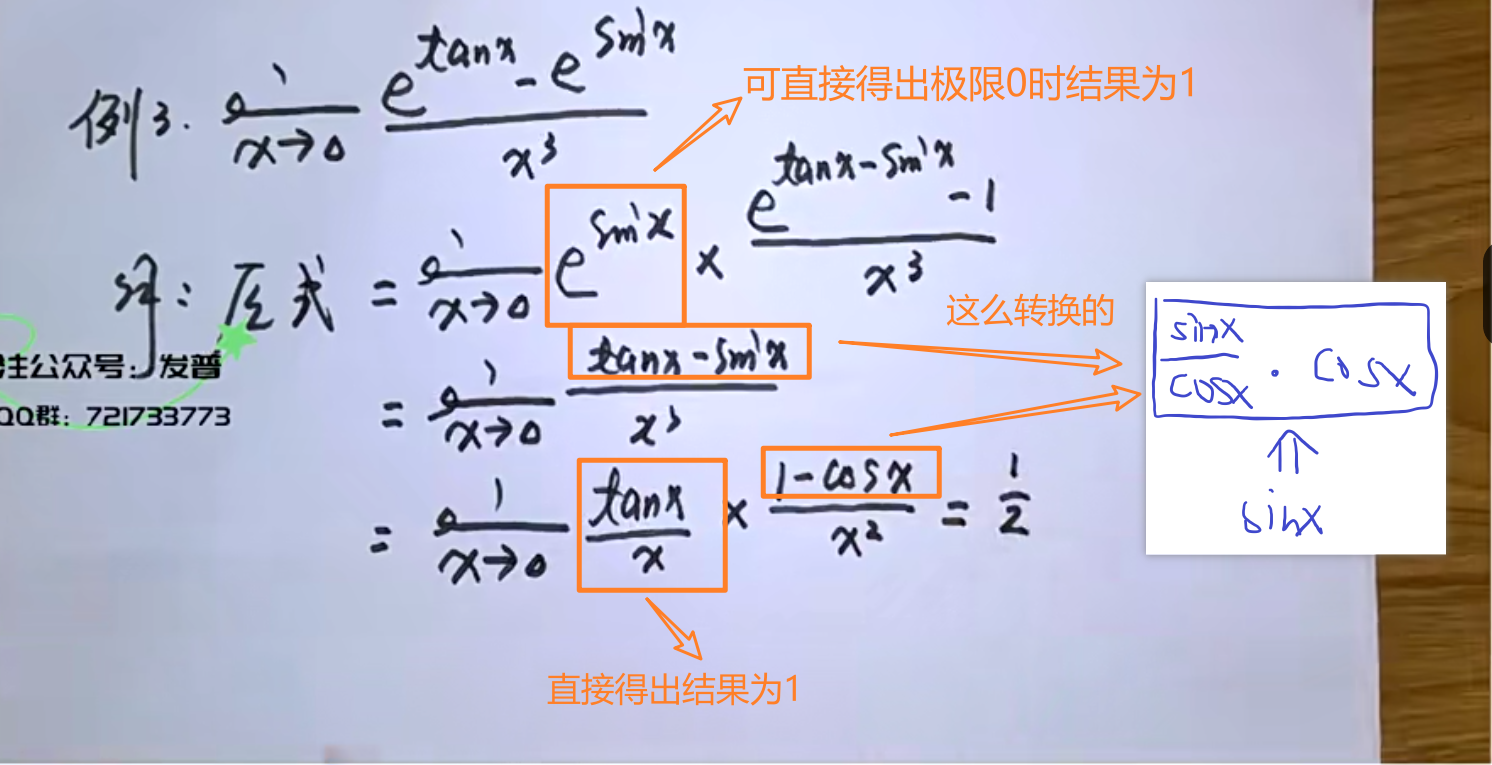 例3. lim x→0 (e^{tanx} - e^{sinx}) / x³
可直接得出极限0时结果为1
解: 原式 = lim x→0 e^{sinx} × (e^{tanx-sinx} - 1) / x³
这么转换的
= lim x→0 (tanx - sinx) / x³
sinx / cosx · cosx
⇑
sinx
= lim x→0 tanx / x × (1-cosx) / x² = 1/2
直接得出结果为1
注公众号: 发普
QQ群: 721733773